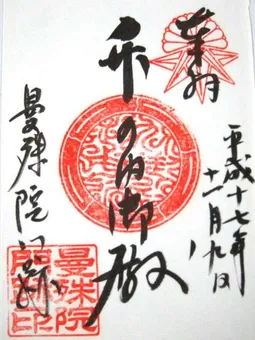 奉拝
平成十七年
十一月九日
竹の内御殿
曼殊院门跡
曼殊院
門跡印